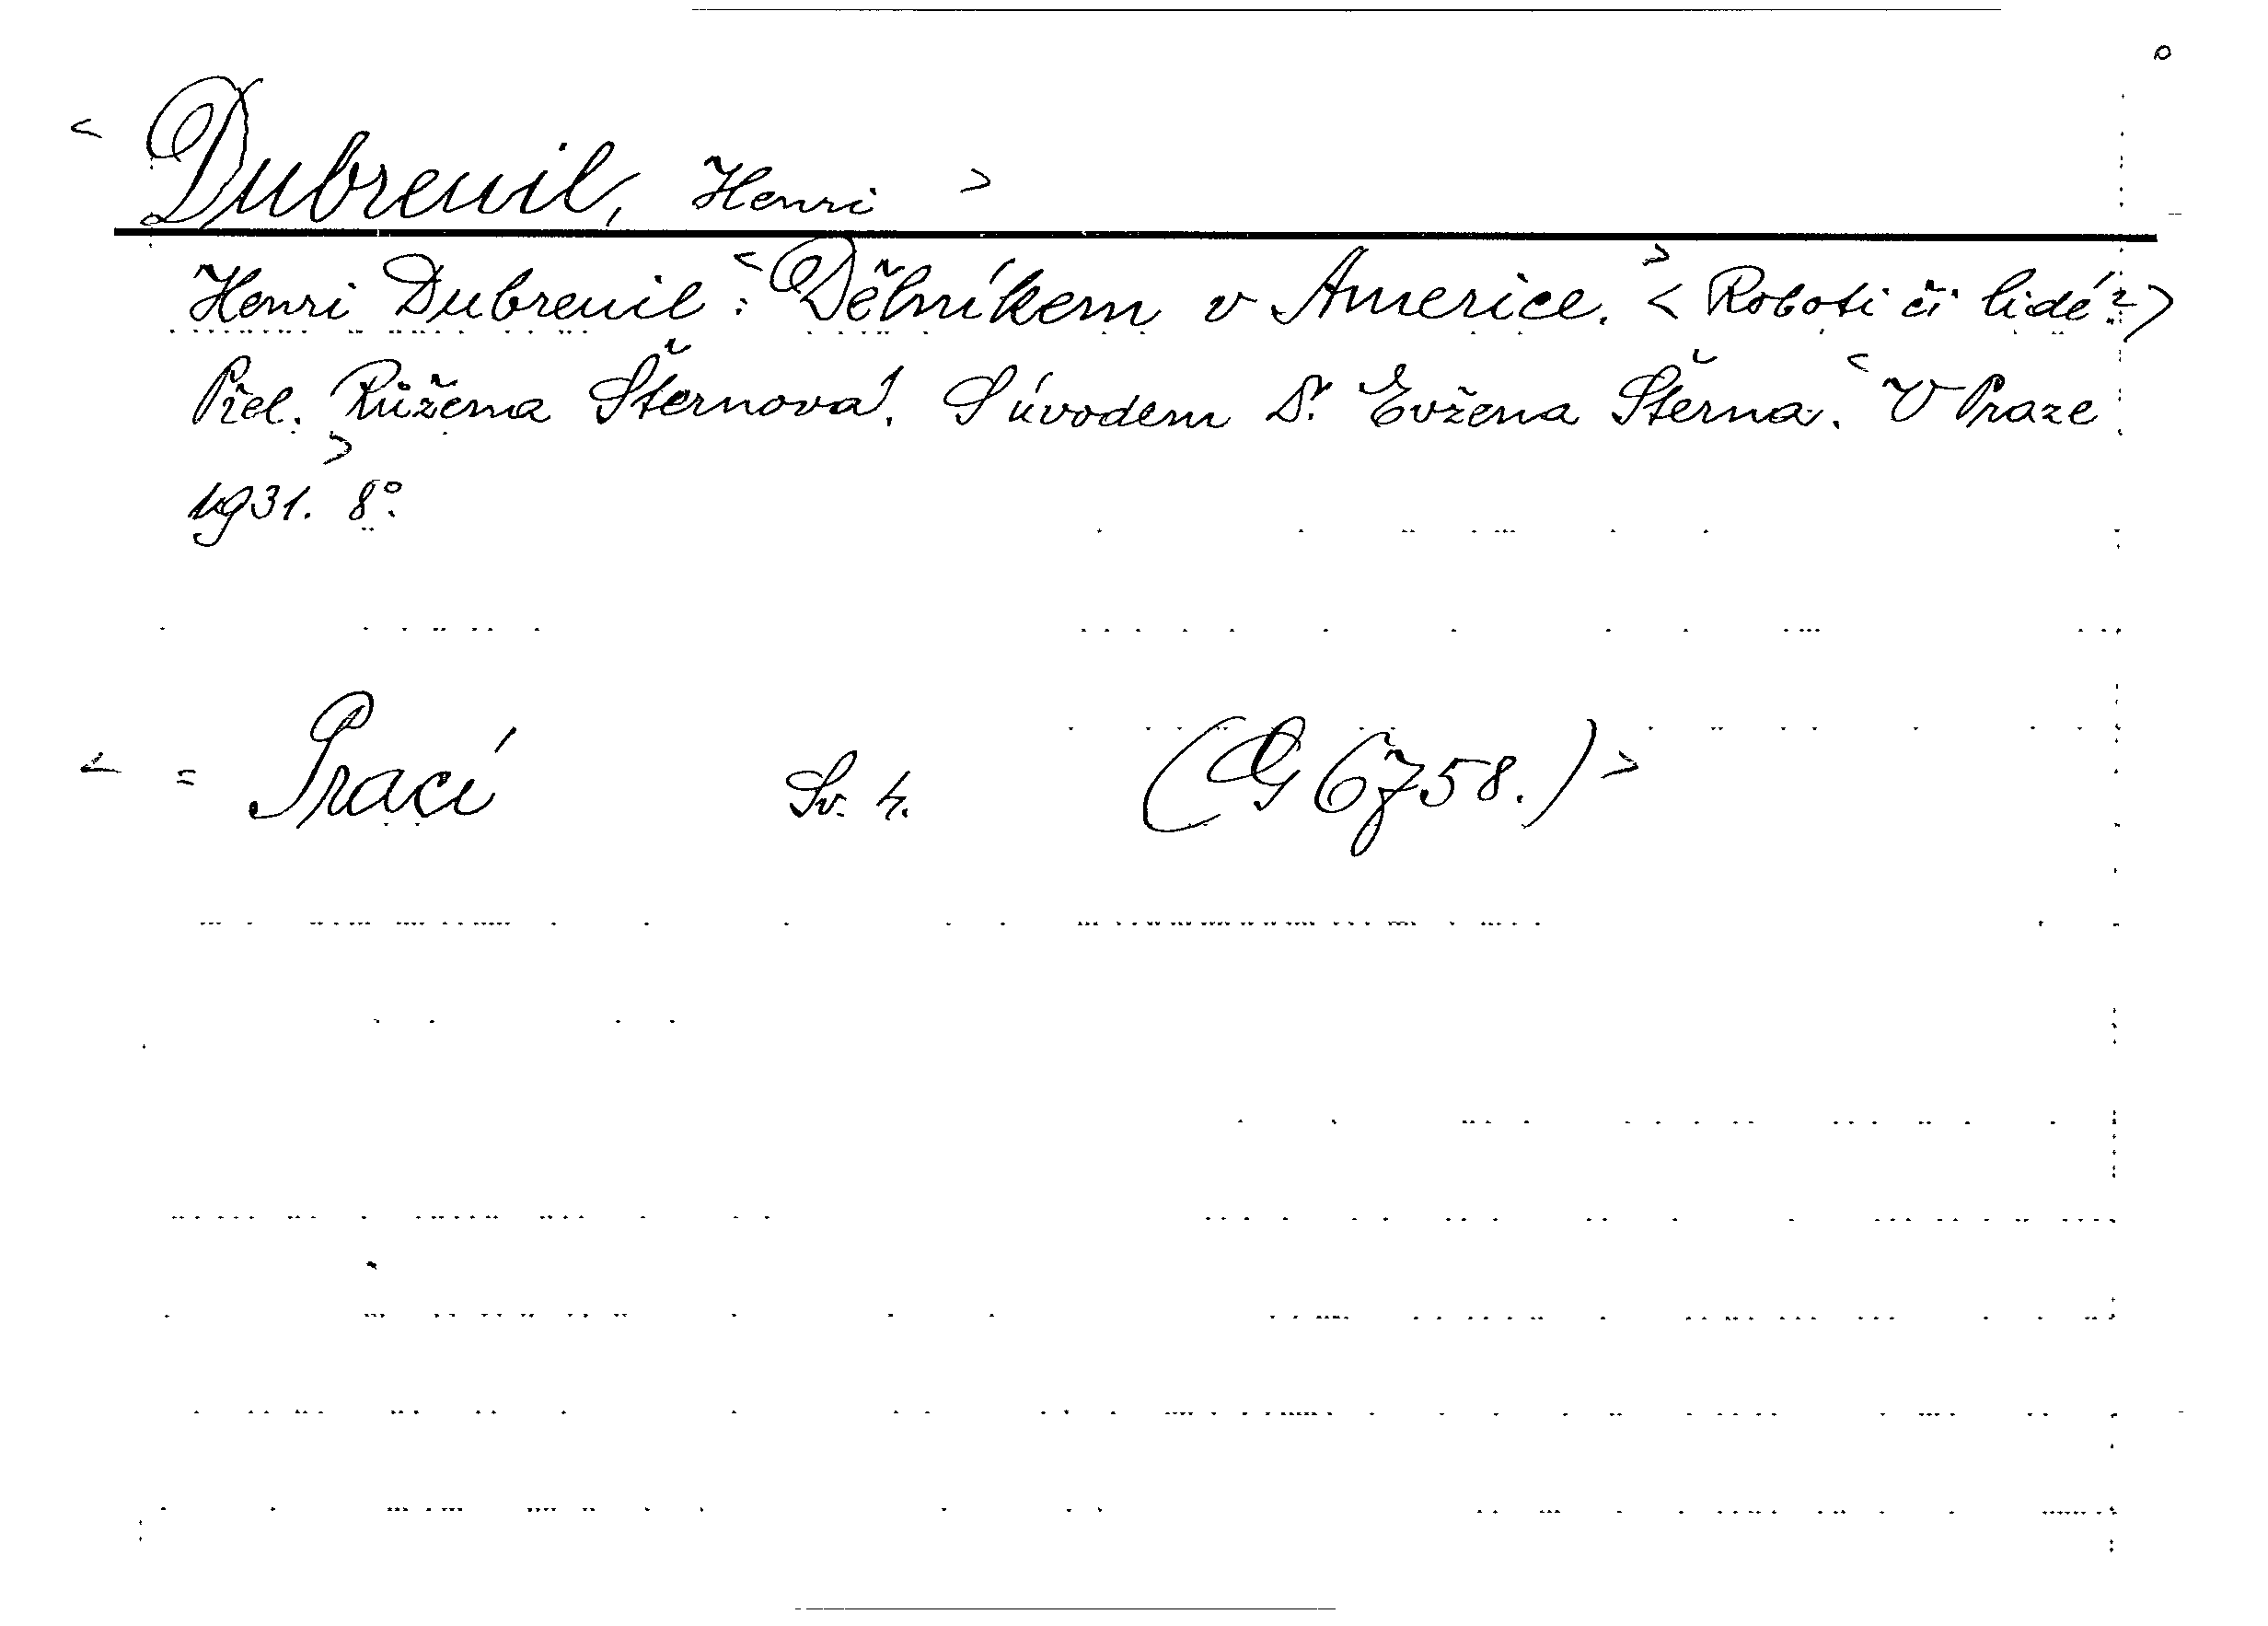 < Dubreuil, Henri >
Henri Dubreuil: < Dělníkem v Americe. > < Roboti či lidé? >
Přel. Růžena Šternová. S úvodem Dr. Evžena Šterna. < V Praze
1931. > 8°.
< = Prací Sv. 4. (G 6758.) >